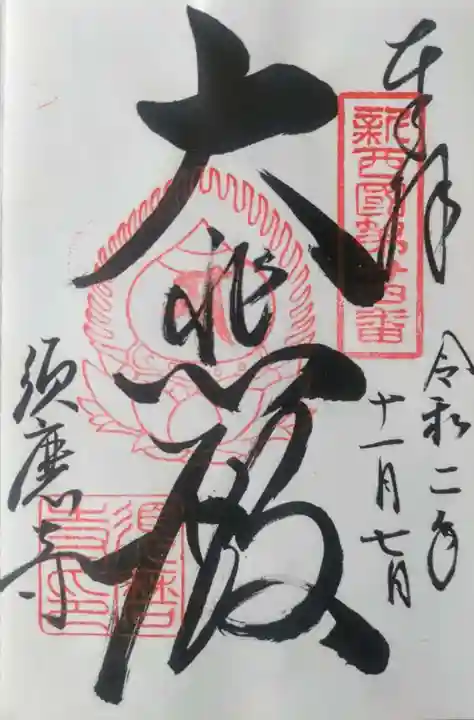 奉拝
新西國第廿四番
令和二年
十一月七日
大悲殿
須磨寺